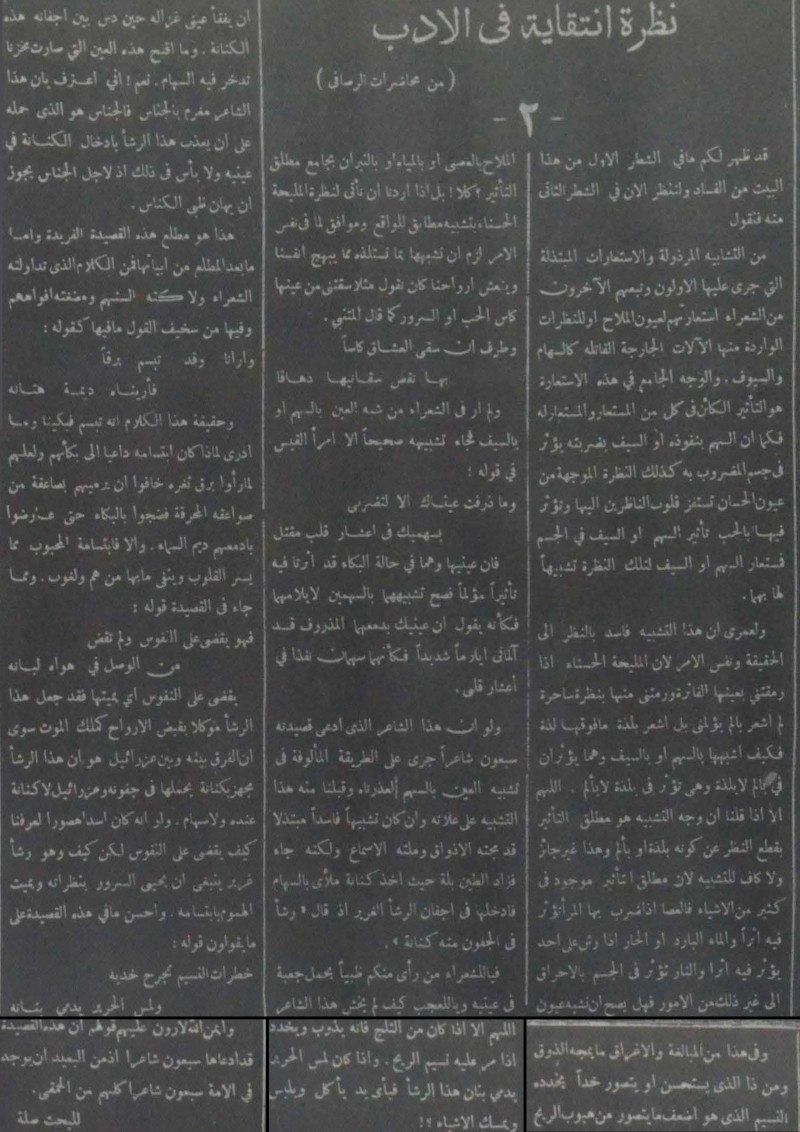 نظرة انتقاية في الادب
( من محاضرات الرصافي )
- ٢ -
قد ظهر لكم مافي الشطر الاول من هذا
البيت من الفساد ولننظر الان في الشطر الثاني
منه فنقول
من التشابيه المرذولة والاستعارات المبتذلة
التي جرى عليها الاولون وتبعهم الآخرون
من الشعراء استعارتهم لعيون الملاح او للنظرات
الواردة منها الآلات الجارحة القاتله كالسهام
والسيوف . والوجه الجامع في هذه الاستعارة
هو التأثير الكائن في كل من المستعار والمستعار له
فكما ان السهم بنفوذه او السيف بضربته يؤثر
في جسم المضروب به كذلك النظرة الموجهة من
عيون الحسان تستفز قلوب الناظرين اليها وتؤثر
فيها بالحب تأثير السهم او السيف في الجسم
فستعار السهم او السيف لتلك النظرة تشبيهاً
لها بهما .
ولعمري ان هذا التشبيه فاسد بالنظر الى
الحقيقة ونفس الامر لان المليحة الحسناء اذا
رمقتني بعينها الفاترة ورمتني منها بنظرة ساحرة
لم اشعر بالم يؤلمني بل اشعر بلذة مافوقها لذة
فكيف اشبهها بالسهم او بالسيف وهما يؤثران
في بالم لابلذة وهي تؤثر في بلذة لابألم . اللهم
الا اذا قلنا ان وجه التشبيه هو مطلق التأثير
بقطع النظر عن كونه بلذة او بألم وهذا غير جائز
ولا كاف للتشبيه لان مطلق التأثير موجود في
كثير من الاشياء فالعصا اذا ضرب بها المرأ تؤثر
فيه اثراً والماء البارد او الحار اذا رش على احد
يؤثر فيه اثرا والنار تؤثر في الجسم بالاحراق
الى غير ذلك من الامور فهل يصح ان نشبه عيون
الملاح بالعصى او بالمياه او بالنيران بجامع مطلق
التأثير ؟ كلا ! بل اذا اردنا ان نأتي لنظرة المليحة
الحسناء بتشبيه مطابق للواقع وموافق لما في نفس
الامر لزم ان نشبهها بما نستلذه مما يبهج انفسنا
وينعش ارواحنا كان نقول مثلا سقتني من عينها
كاس الحب او السرور كما قال المتنبي .
وطرف ان سقى العشاق كاساً
بها نقص سقانيها دهاقا
ولم ار في الشعراء من شبه العين بالسهم او
بالسيف فجاء تشبيهه صحيحاً الا امرأ القيس
في قوله :
وما ذرفت عيناك الا لتضربي
بسهميك في اعشار قلب مقتل
فان عينيها وهما في حالة البكاء قد أثرتا فيه
تأثيراً مؤلماً فصح تشبيههما بالسهمين لايلامهما
فكأنه يقول ان عينيك بدمعهما المذروف قد
آلمتاني ايلاماً شديداً فكأنهما سهمان نفذا في
أعشار قلبي .
ولو ان هذا الشاعر الذي أدعى قصيدته
سبعون شاعراً جرى على الطريقة المألوفة في
تشبيه العين بالسهم لعذرناه وقبلنا منه هذا
التشبيه على علاته وان كان تشبيهاً فاسداً مبتذلا
قد مجته الاذواق وملته الاسماع ولكنه جاء
فزاد الطين بلة حيث اخذ كنانة ملأى بالسهام
فادخلها في اجفان الرشأ الغرير اذ قال « رشأ
في الجفون منه كنانة » .
فياللشعراء من رأى منكم ظبياً يحمل جعبة
في عينيه وياللعجب كيف لم يخش هذا الشاعر
ان يفقأ عيني غزاله حين دس بين اجفانه هذه
الكنانة . وما اقبح هذه العين التي صارت مخزنا
تدخر فيه السهام . نعم ! اني اعترف بان هذا
الشاعر مغرم بالجناس فالجناس هو الذي حمله
على ان يعذب هذا الرشأ بادخال الكنانة في
عينيه ولا بأس في ذلك اذ لاجل الجناس يجوز
ان يهان ظبي الكناس .
هذا هو مطلع هذه القصيدة الفريدة واما
مابعد المطلع من ابياتها فمن الكلام الذي تداولته
الشعراء ولاكته السنتهم ومضغته افواههم
وفيها من سخيف القول مافيها كقوله :
وارانا وقد تبسم برقاً
فأريناه ديمة هتانه
وحقيقة هذا الكلام انه تبسم فبكينا وما
ادري لماذا كان ابتسامه داعيا الى بكأئهم ولعلهم
لما رأوا برق ثغره خافوا ان يرميهم بصاعقة من
صواعقه المحرقة فضجوا بالبكاء حتى عارضوا
بادمعهم ديم السماء . والا فابتسامة المحبوب مما
يسر القلوب وينفي مابها من هم ولغوب . ومما
جاء في القصيدة قوله :
فهو يقضي على النفوس ولم نقض
من الوصل في هواه لبانه
يقضي على النفوس أي يميتها فقد جعل هذا
الرشأ موكلا بقبض الارواح كملك الموت سوى
ان الفرق بينه وبين عزرائيل هو أن هذا الرشأ
مجهز بكنانة يحملها في جفونه وعزرائيل لا كنانة
عنده ولاسهام . ولو انه كان اسدا هصورا لعرفنا
كيف يقضي على النفوس لكن كيف وهو رشأ
غرير ينبغي ان يحيى السرور بنظراته ويميت
الهموم بابتسامه . واحسن مافي هذه القصيدة على
مايقولون قوله :
خطرات النسيم تجرح خديه
ولمس الحرير يدمي بنانه
وفي هذا من المبالغة والاغراق مايمجه الذوق
ومن ذا الذي يستحسن او يتصور خداً يخدده
النسيم الذي هو اضعف مايتصور من هبوب الريح
اللهم الا اذا كان من الثلج فانه يذوب ويخدد
اذا مر عليه نسيم الريح . واذا كان لمس الحرير
يدمي بنان هذا الرشأ فبأي يد يأكل ويلبس
ويمسك الاشياء ؟!
وأيمن الله لارون عليهم قولهم ان هذه القصيدة
قد ادعاها سبعون شاعرا اذ من البعيد ان يوجد
في الامة سبعون شاعرا كلهم من الحمقى .
للبحث صلة